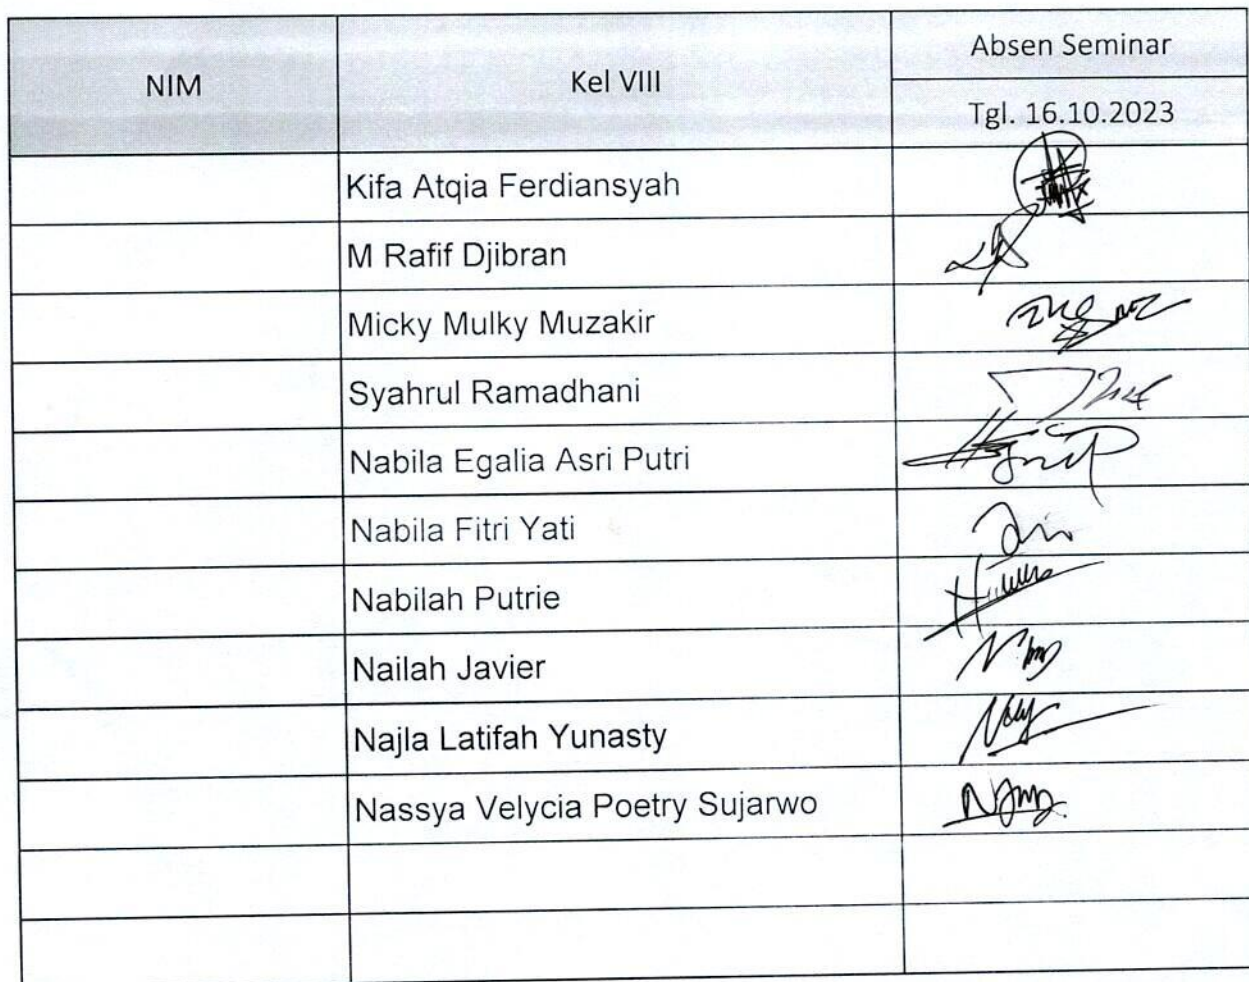 NIM
Kel VIII
Absen Seminar
Tgl. 16.10.2023
Kifa Atqia Ferdiansyah
M Rafif Djibran
Micky Mulky Muzakir
Syahrul Ramadhani
Nabila Egalia Asri Putri
Nabila Fitri Yati
Nabilah Putrie
Nailah Javier
Najla Latifah Yunasty
Nassya Velycia Poetry Sujarwo